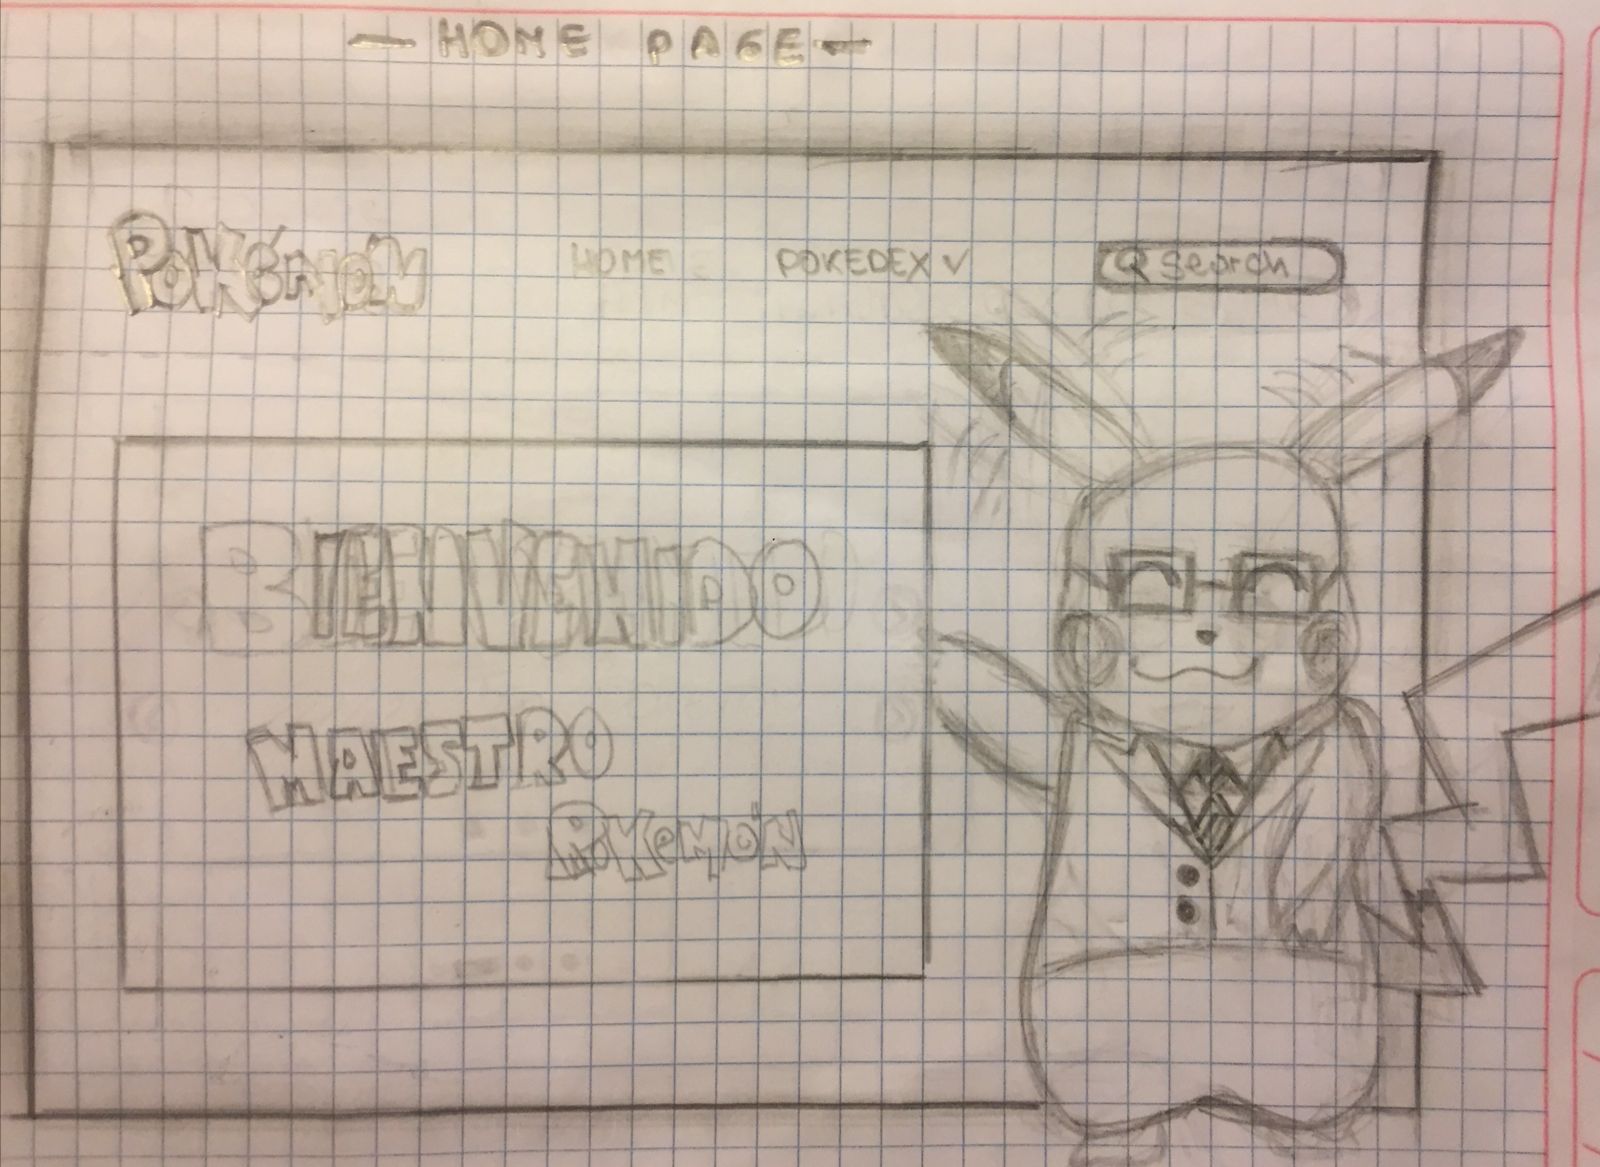 — HOME PAGE —
POKéMON HOME POKEDEX ∨ search
BIENVENIDO
MAESTRO
POKeMóN